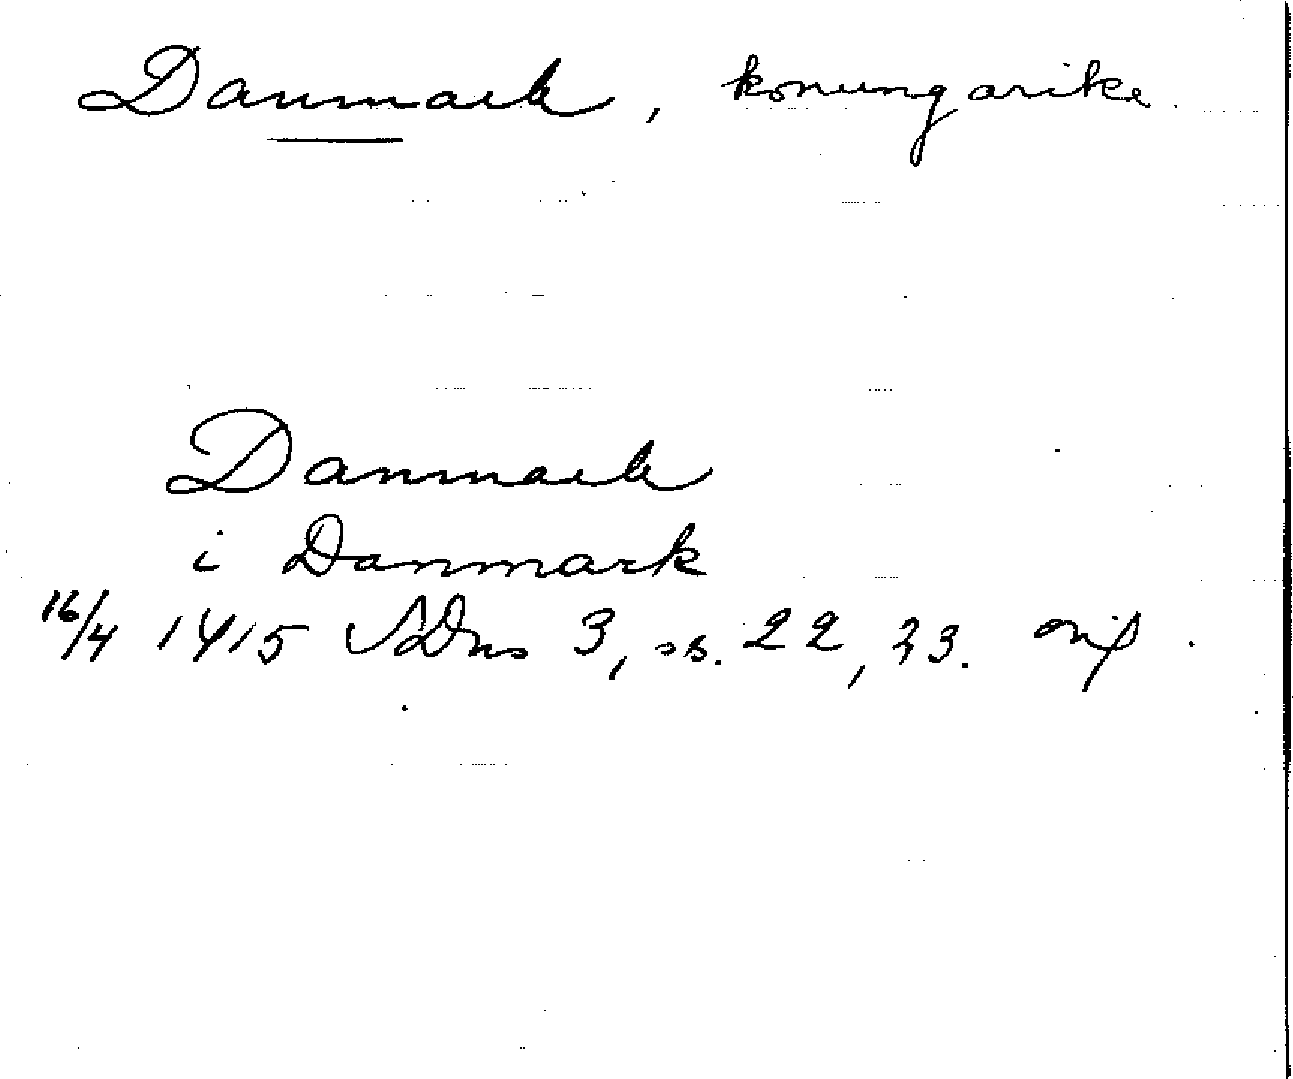 Danmark, konungarike.
Danmark
i Danmark
16/4 1415 SDns 3, ss. 22, 23. orig.